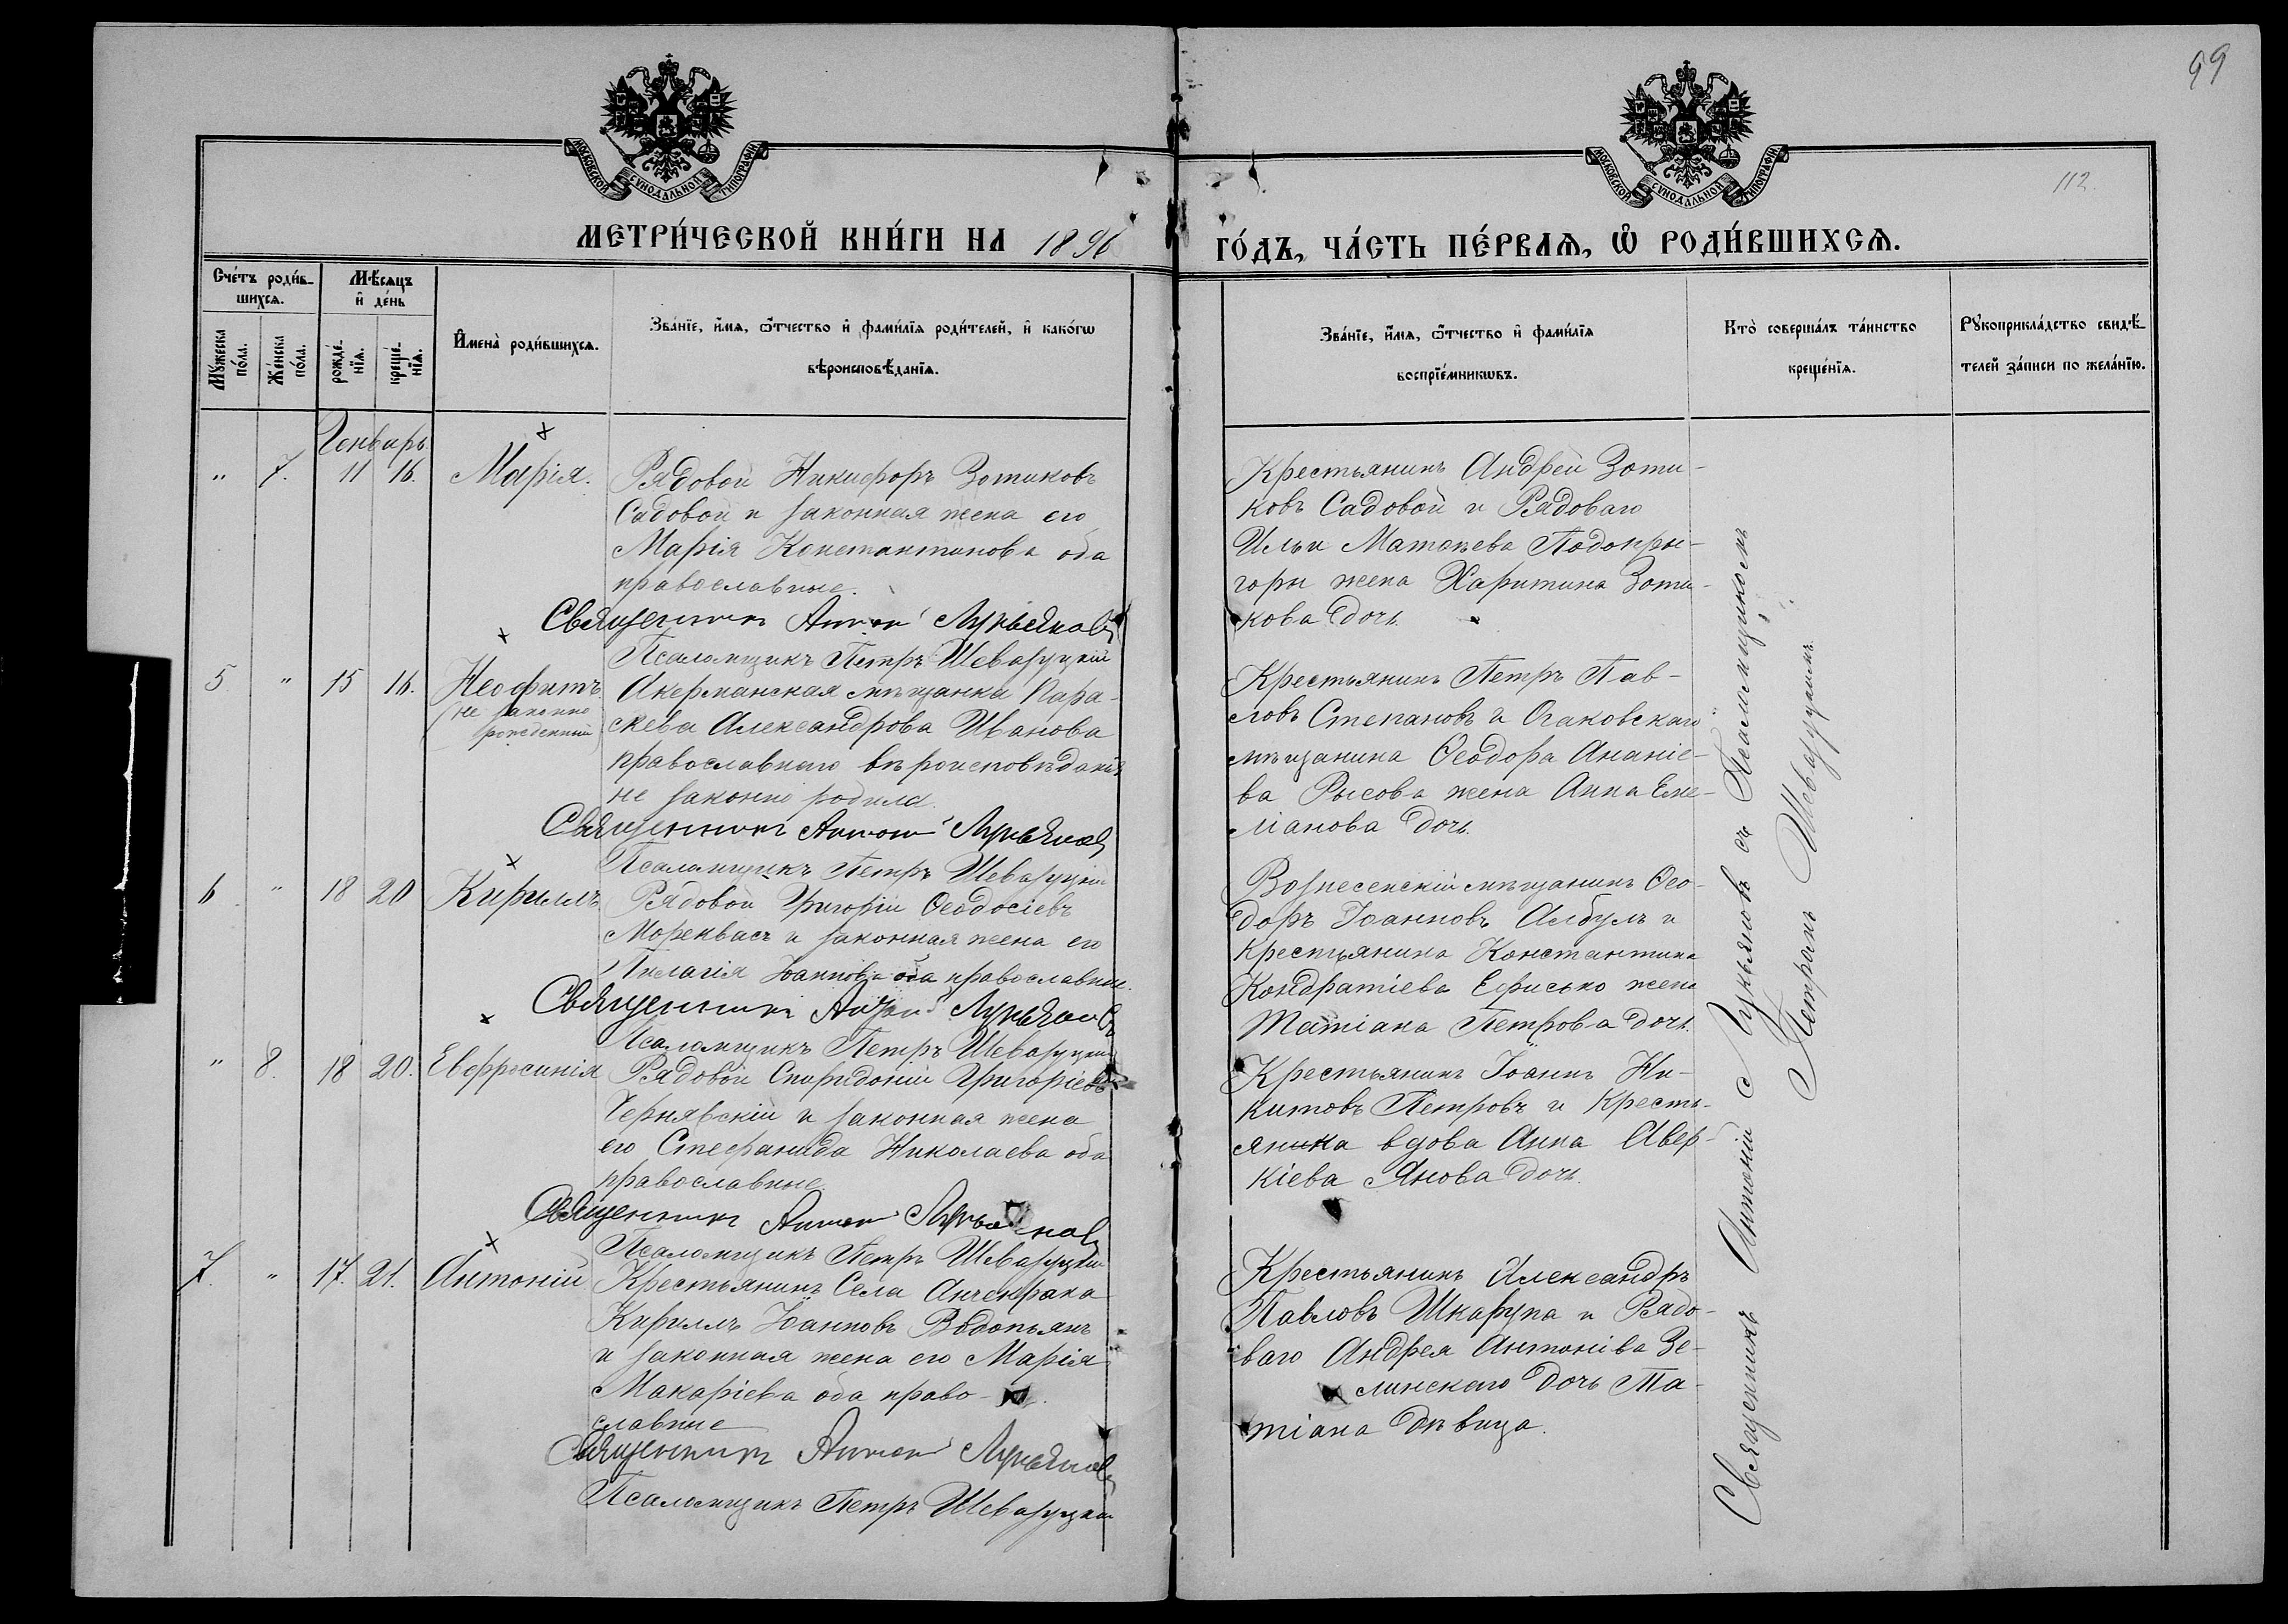 99
112.
МОСКОВСКОЙ СѴНОДАЛЬНОЙ ТИПОГРАФІИ
МОСКОВСКОЙ СѴНОДАЛЬНОЙ ТИПОГРАФІИ
МЕТРИ́ЧЕСКОЙ КНИ́ГИ НА 1896
ГО́ДЪ, ЧА́СТЬ ПЕ́РВАѦ, Ѡ҆ РОДИ́ВШИХСѦ.
Сче́тъ роди́в-
шихсѧ.
Мѣ́сѧцъ
и҆ де́нь
Мꙋ́жеска
по́ла.
Же́нска
по́ла.
рожде́-
нїѧ.
креще́-
нїѧ.
И҆мена̀ роди́вшихсѧ.
Зва́нїе, и҆́мѧ, ѻ҆́тчество и҆ фами́лїѧ роди́телей, и҆ како́гѡ
вѣроисповѣ́данїѧ.
Зва́нїе, и҆́мѧ, ѻ҆́тчество и҆ фами́лїѧ
воспрїе́мникѡвъ.
Кто̀ соверша́лъ та́инство
креще́нїѧ.
Рꙋкоприкла́дство свидѣ́-
телей за́писи по жела́нїю.
Генварь
" 7. 11 16. Марія. Рядовой Никифоръ Зотиковъ
Садовой и законная жена его
Марія Константинова оба
православные.
Священникъ Антоній Лукьяновъ
Псаломщикъ Петръ Шеваруцкій
Крестьянинъ Андрей Зоти-
ковъ Садовой и Рядоваго
Ильи Матѳѣева Подопри-
горы жена Харитина Зоти-
кова дочь.
5 " 15 16. Неофитъ
(не законно
рожденный)
Акерманская мѣщанка Пара-
скева Александрова Иванова
православнаго вѣроисповѣданія
не законно родила.
Священникъ Антоній Лукьяновъ
Псаломщикъ Петръ Шеваруцкій
Крестьянинъ Петръ Пав-
ловъ Степановъ и Очаковскаго
мѣщанина Ѳеодора Ананіе-
ва Рысова жена Анна Еме-
ліанова дочь.
6 " 18 20 Кириллъ Рядовой Григорій Ѳеодосіевъ
Мореквасъ и законная жена его
Пелагія Іоаннова оба православные.
Священникъ Антоній Лукьяновъ
Псаломщикъ Петръ Шеваруцкій
Вознесенскій мѣщанинъ Ѳео-
доръ Іоанновъ Албулъ и
крестьянина Константина
Кондратіева Ефисько жена
Татіана Петрова дочь.
" 8. 18 20. Евфросинія Рядовой Спиридоній Григоріевъ
Чернявскій и законная жена
его Стефанида Николаева оба
православные.
Священникъ Антоній Лукьяновъ
Псаломщикъ Петръ Шеваруцкій
Крестьянинъ Іоаннъ Ни-
китовъ Петровъ и Кресть-
янина вдова Анна Авер-
кіева Янова дочь.
7. " 17. 21. Антоній Крестьянинъ Села Анчекрака
Кириллъ Іоанновъ Водопьянъ
и законная жена его Марія
Макаріева оба право-
славные
Священникъ Антоній Лукьяновъ
Псаломщикъ Петръ Шеваруцкій
Крестьянинъ Александръ
Павловъ Шкарупа и Рядо-
ваго Андрея Антоніева Зе-
линскаго дочь Та-
тіана дѣвица.
Священникъ Антоній Лукьяновъ съ Псаломщикомъ
Петромъ Шеваруцкимъ.